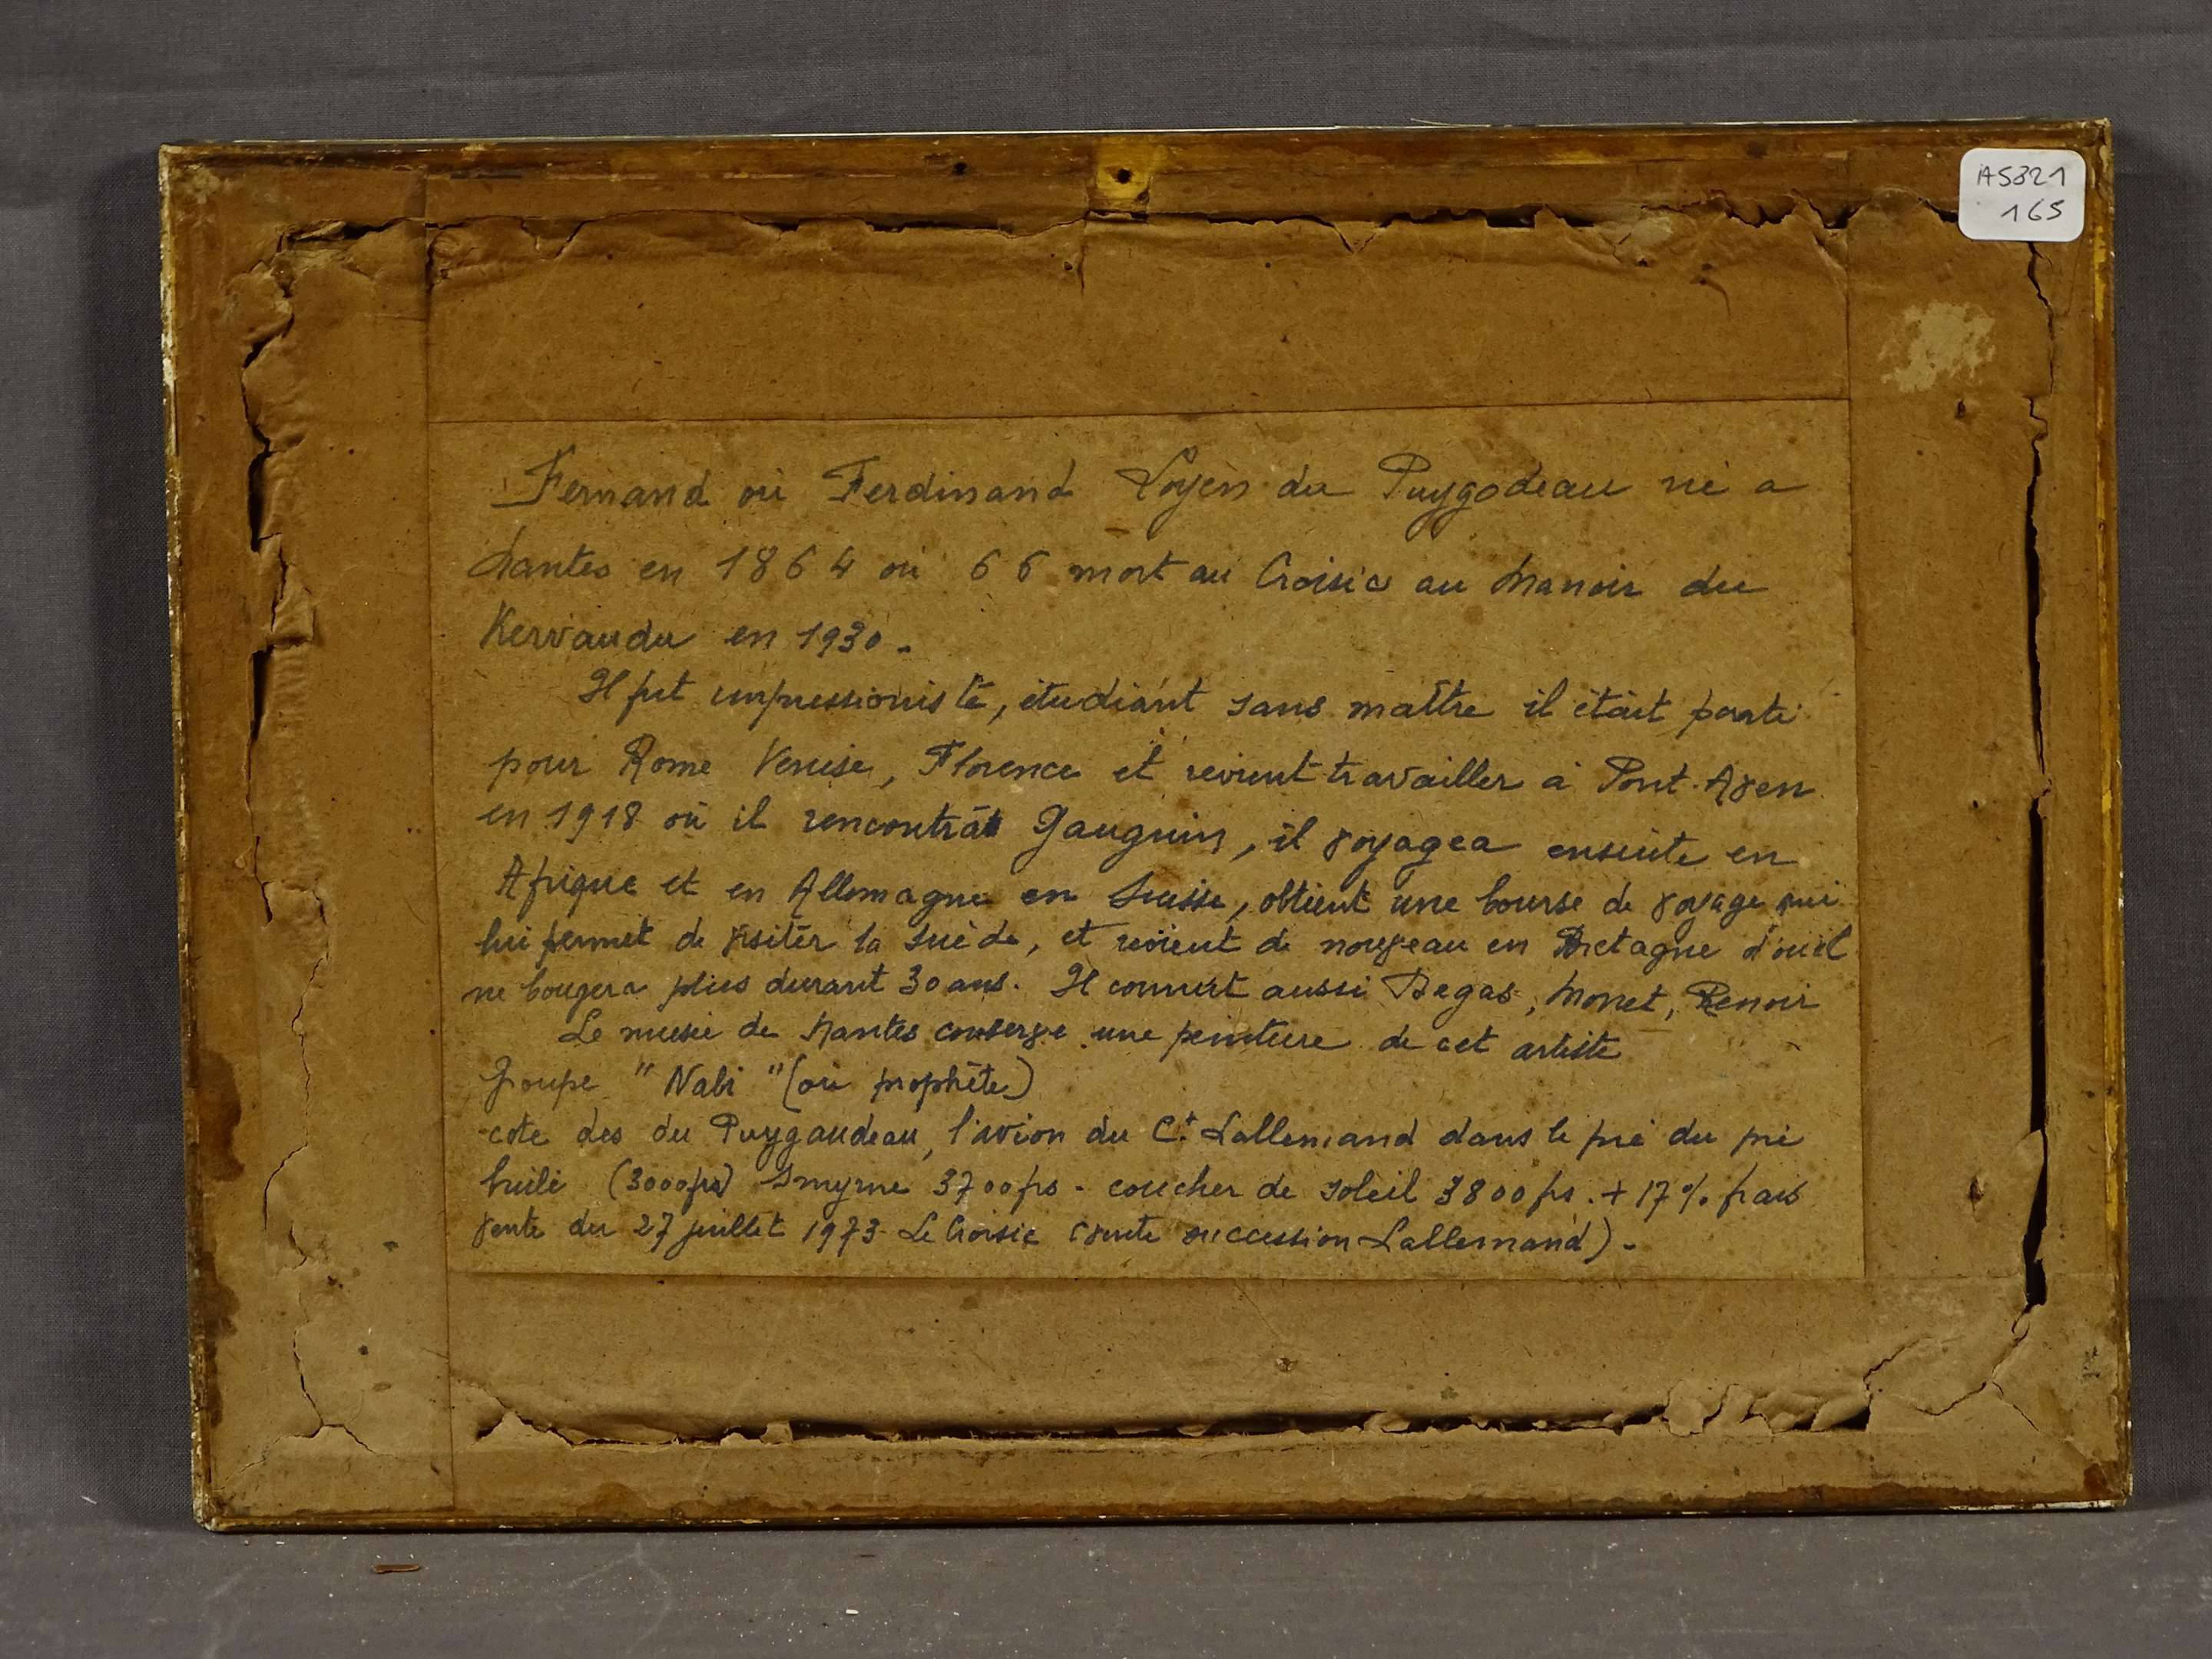 A5321
165
Fernand ou Ferdinand Loyen du Puygodeau né a
Nantes en 1864 ou 66 mort au Croisic au Manoir du
Kervaudu en 1930.
Il fut impressioniste, étudiant sans maître il était parti
pour Rome Venise, Florence et revient travailler à Pont-Aven
en 1918 où il rencontrat Gauguin, il voyagea ensuite en
Afrique et en Allemagne en Suisse, obtient une bourse de voyage qui
lui permet de visiter la Suède, et revient de nouveau en Bretagne d'où il
ne bougera plus durant 30 ans. Il connut aussi Degas, Monet, Renoir
Le musée de Nantes conserve une peinture de cet artiste
Groupe "Nabi" (ou prophète)
cote des du Puygaudeau, l'avion du Ct Lallemand dans le pré du pré
brûlé (3000frs) Smyrne 3700frs - coucher de soleil 3800frs. + 17% frais
vente du 27 juillet 1973 Le Croisic (vente succession Lallemand).